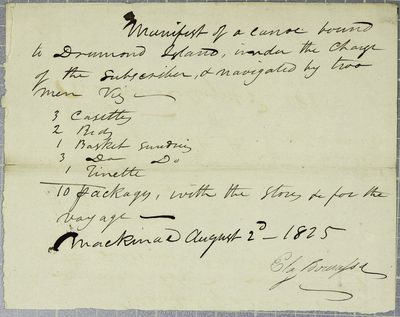 Manifest of a canoe bound
to Drumond Island, under the Charge
of the Subscriber, & navigated by two
men Viz
3 Casettes
2 Beds
1 Basket Sundries
3 Do Do
1 Tinette
10 Packages, with the Stores &c for the
voyage
Mackinac August 2d 1825